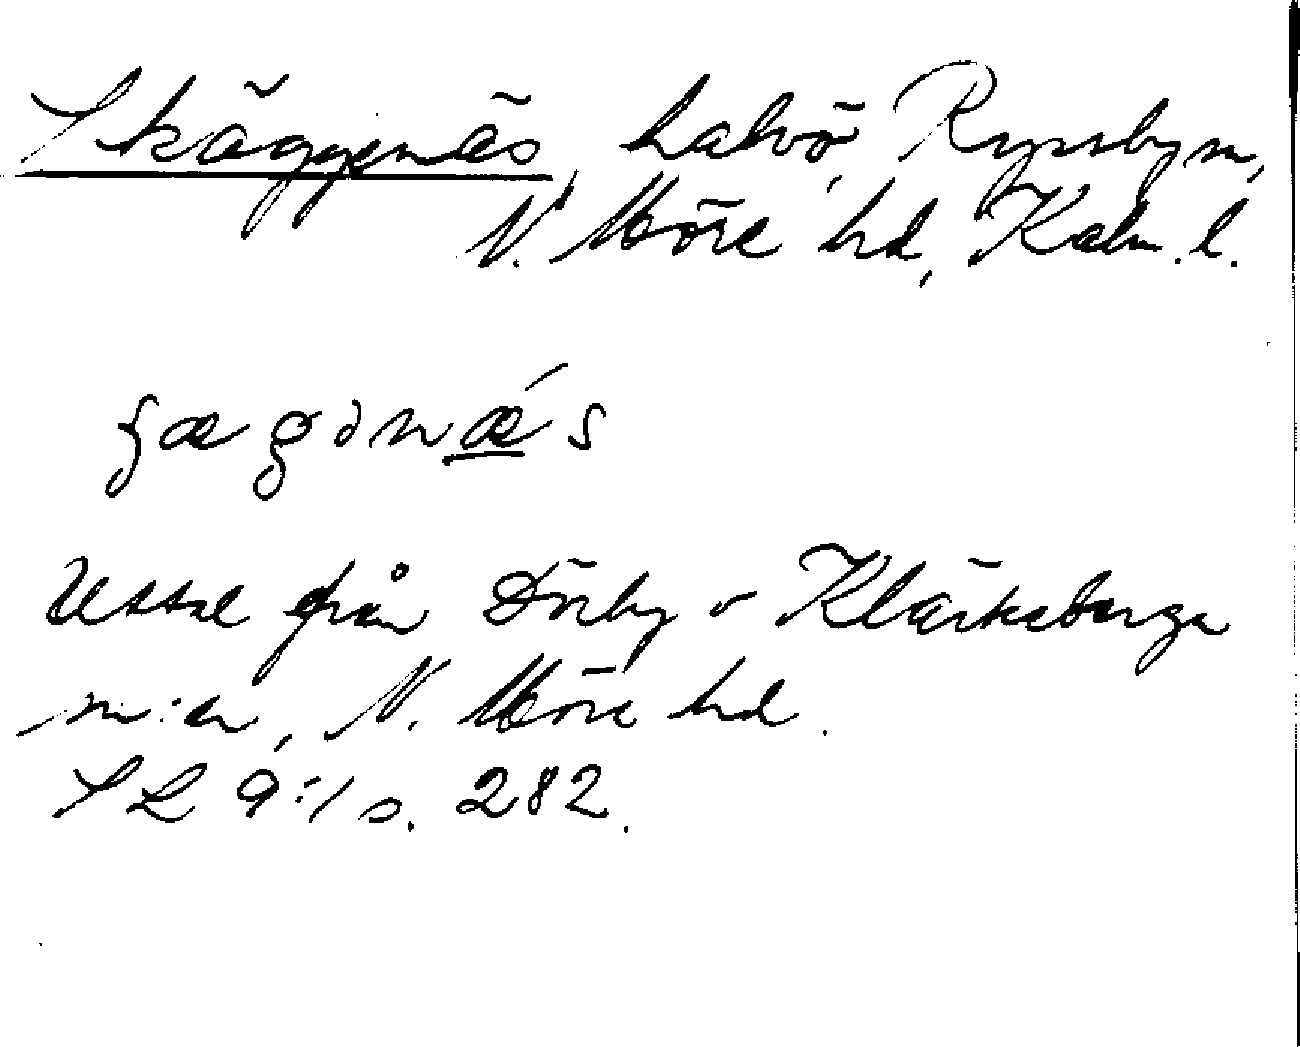 Skäggenäs, halvö, Ryssby sn,
N. Möre hd, Kalm. l.
ʃægənǽs
Uttal från Dörby o Kläckeberga
sn:ar, N. Möre hd.
SL 9:1 s. 282.